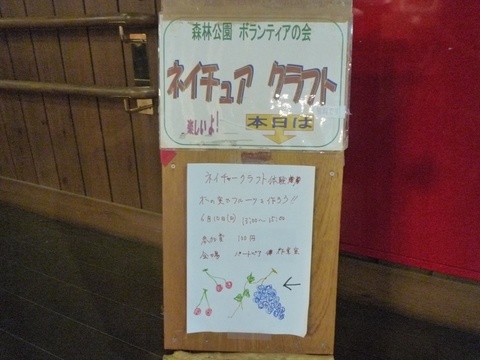 森林公園 ボランティアの会
ネイチュア クラフト
楽しいよ！
本日は
ネイチャークラフト体験
木の実でフルーツを作ろう!!
6月10日(日) 13:00～15:00
参加費 100円
会場